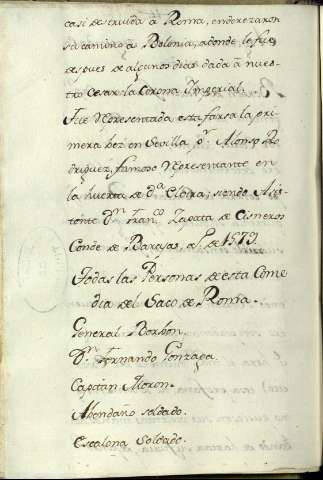 casi destruida à Roma, enderezaron
su camino à Bolonia, adonde le fue
despues de algunos dias dada à nues-
tro Cesar la Corona Imperial.
Fue representada esta farsa la pri
mera bez en Sevilla pr. Alonso Ro
driguez, famoso representante en
la huerta de da. Elvira, siendo Asis-
tente Dn. Franco. Zapata de Cisneros
Conde de Barajas, A. de 1579.
Todas las Personas de esta Come
dia del Saco de Roma.
General Borbon.
Dn. Fernando Gonzaga.
Capitan Moron.
Abendaño soldado.
Escalona Soldado.